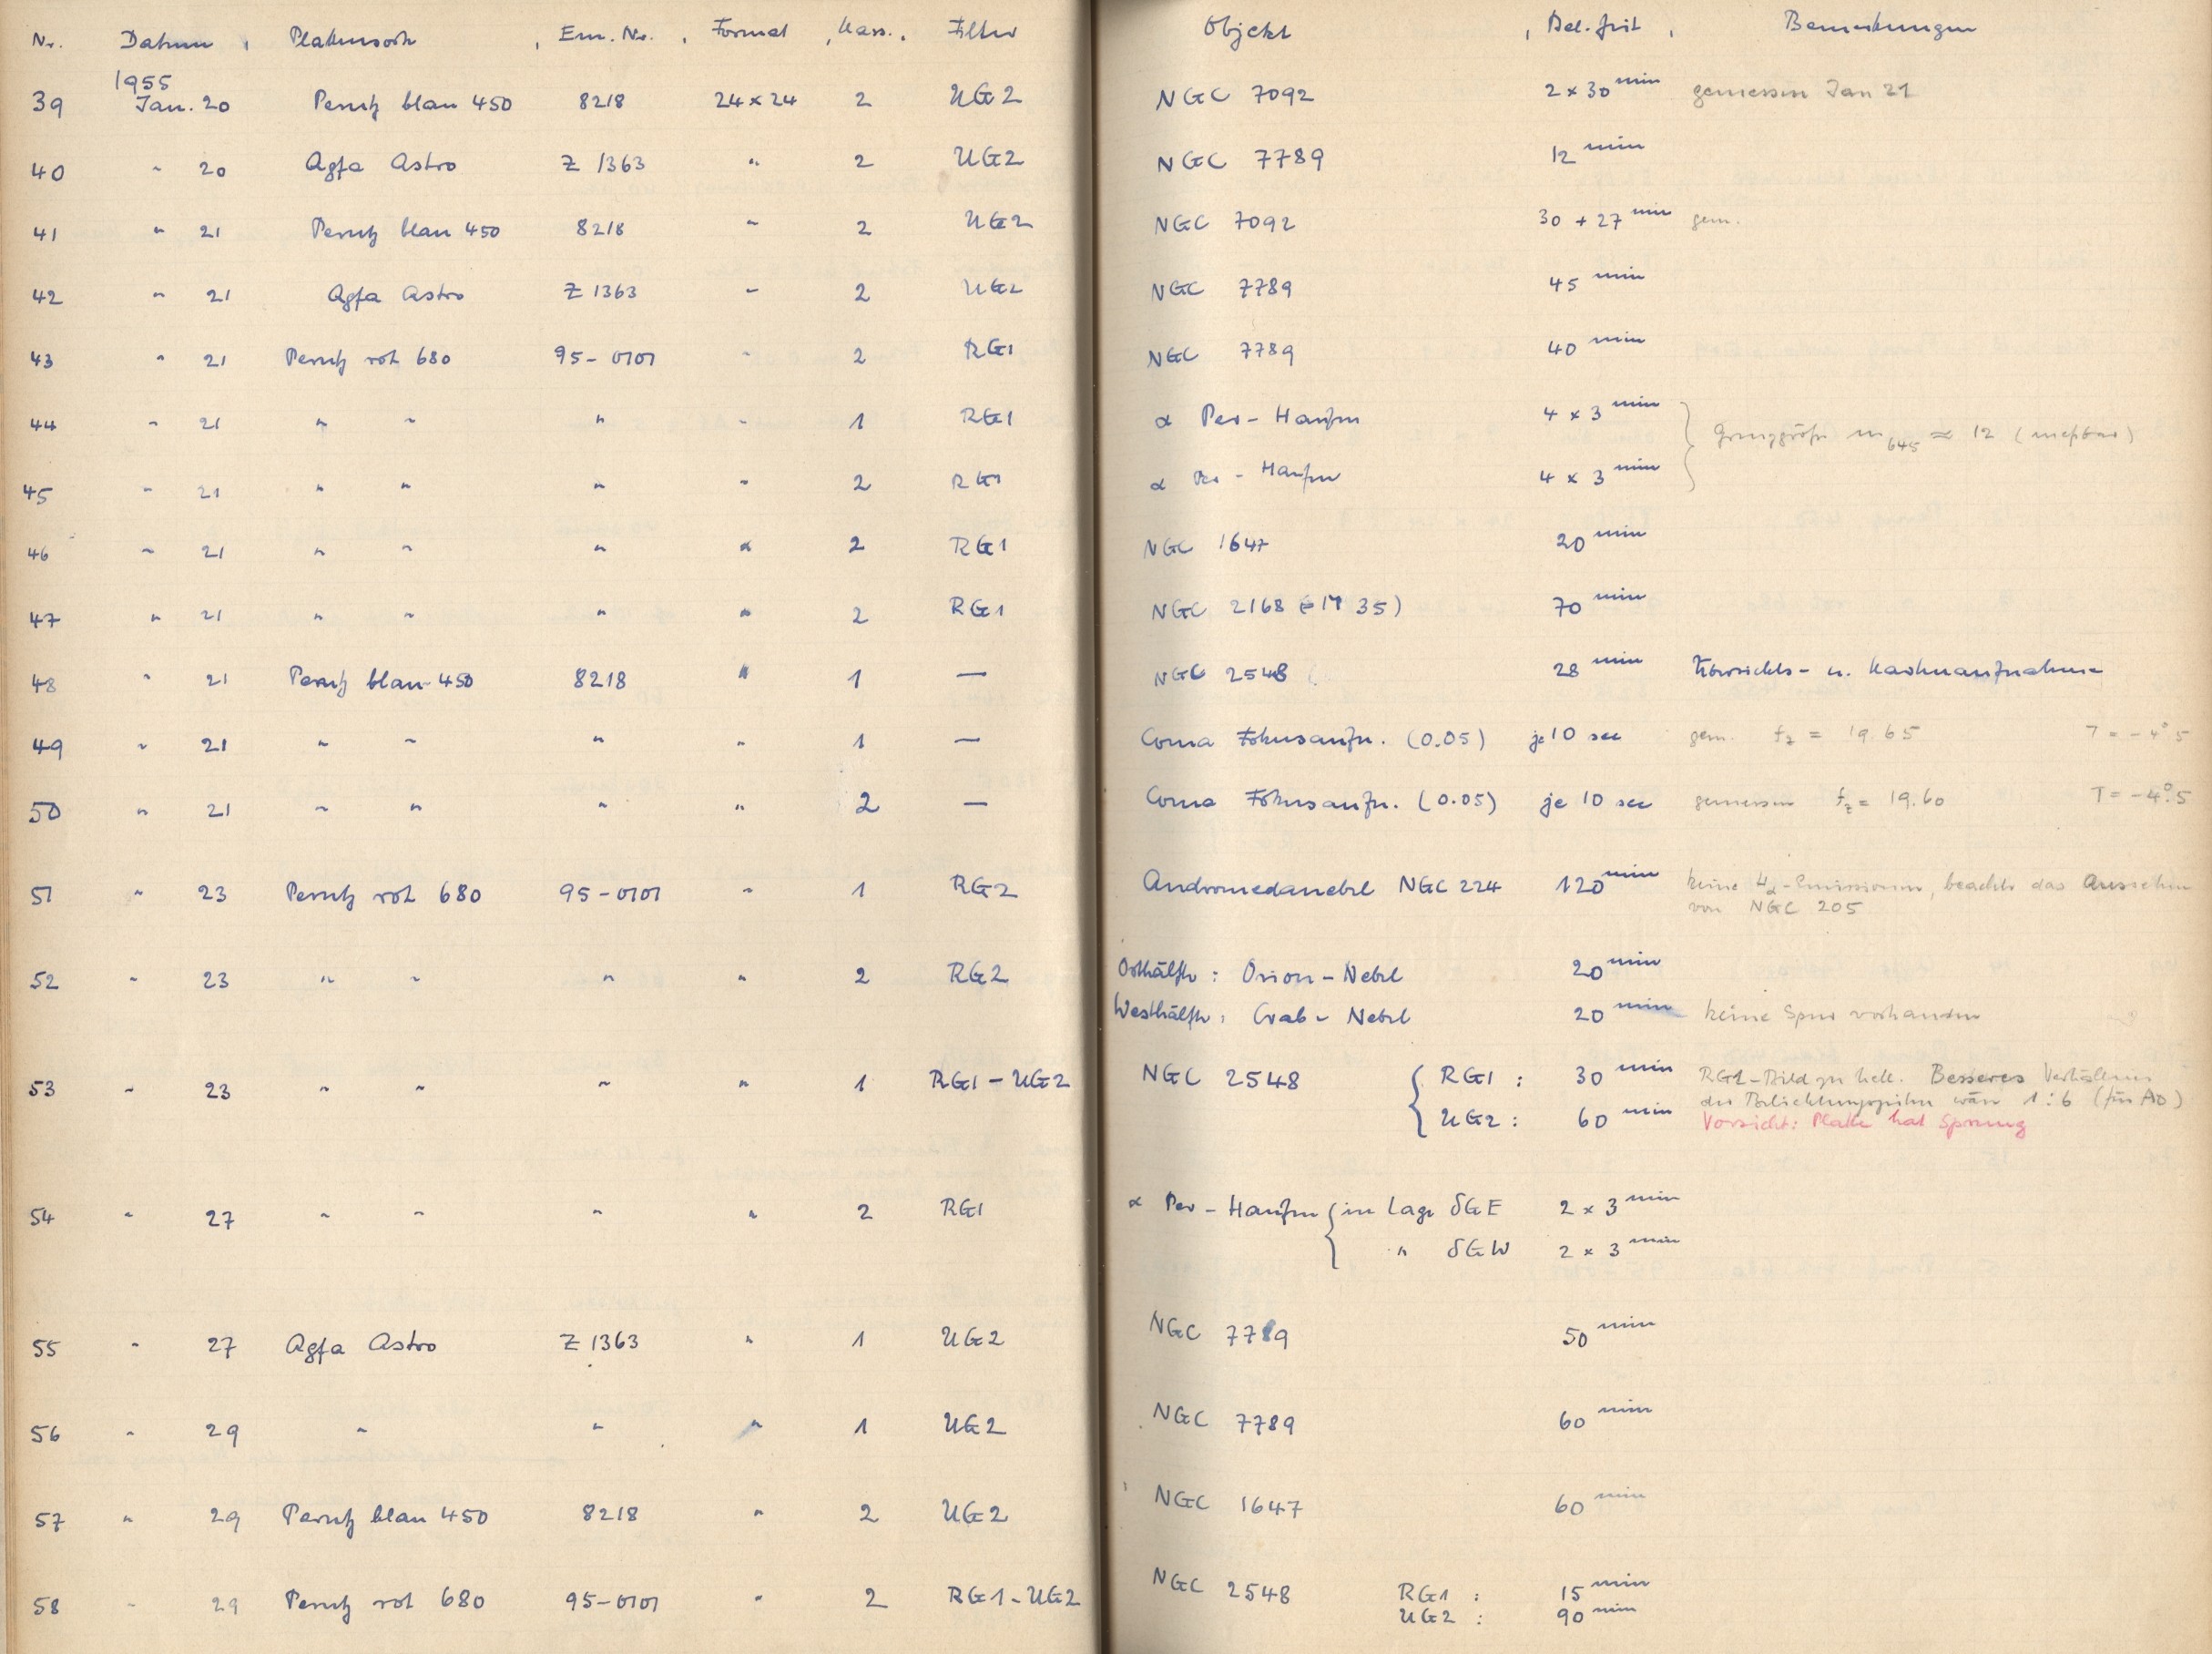 Nr. Datum , Plattensorte , Em. Nr. , Format , Kass. , Filter Objekt , Bel.zeit , Bemerkungen
1955
39 Jan. 20 Perutz blau 450 8218 24 × 24 2 UG2 NGC 7092 2 × 30 min gemessen Jan 21
40 " 20 Agfa Astro Z 1363 " 2 UG2 NGC 7789 12 min
41 " 21 Perutz blau 450 8218 " 2 UG2 NGC 7092 30 + 27 min gem.
42 " 21 Agfa Astro Z 1363 " 2 UG2 NGC 7789 45 min
43 " 21 Perutz rot 680 95-0101 " 2 RG1 NGC 7789 40 min
44 " 21 " " " " 1 RG1 α Per - Haufen 4 × 3 min
Grenzgröße m645 ≈ 12 (meßbar)
45 " 21 " " " " 2 RG1 α Per - Haufen 4 × 3 min
46 " 21 " " " " 2 RG1 NGC 1647 20 min
47 " 21 " " " " 2 RG1 NGC 2168 (= M 35) 70 min
48 " 21 Perutz blau 450 8218 " 1 — NGC 2548 28 min Übersichts- u. Kartenaufnahme
49 " 21 " " " " 1 — Coma Fokusaufn. (0.05) je 10 sec gem. fz = 19.65 T = -4°5
50 " 21 " " " " 2 — Coma Fokusaufn. (0.05) je 10 sec gemessen fz = 19.60 T = -4°.5
51 " 23 Perutz rot 680 95-0101 " 1 RG2 Andromedanebel NGC 224 120 min keine Hα-Emissionen, beachte das Aussehen
von NGC 205
52 " 23 " " " " 2 RG2 Osthälfte : Orion - Nebel 20 min
Westhälfte : Crab - Nebel 20 min keine Spur vorhanden
53 " 23 " " " " 1 RG1 - UG2 NGC 2548 { RG1 : 30 min RG1-Bild zu hell. Besseres Verhältnis
der Belichtungszeiten wäre 1:6 (für A0)
UG2 : 60 min Vorsicht: Platte hat Sprung
54 " 27 " " " " 2 RG1 α Per - Haufen { in Lage δGE 2 × 3 min
" δGW 2 × 3 min
55 " 27 Agfa Astro Z 1363 " 1 UG2 NGC 7789 50 min
56 " 29 " " " 1 UG2 NGC 7789 60 min
57 " 29 Perutz blau 450 8218 " 2 UG2 NGC 1647 60 min
58 " 29 Perutz rot 680 95-0101 " 2 RG1 - UG2 NGC 2548 RG1 : 15 min
UG2 : 90 min